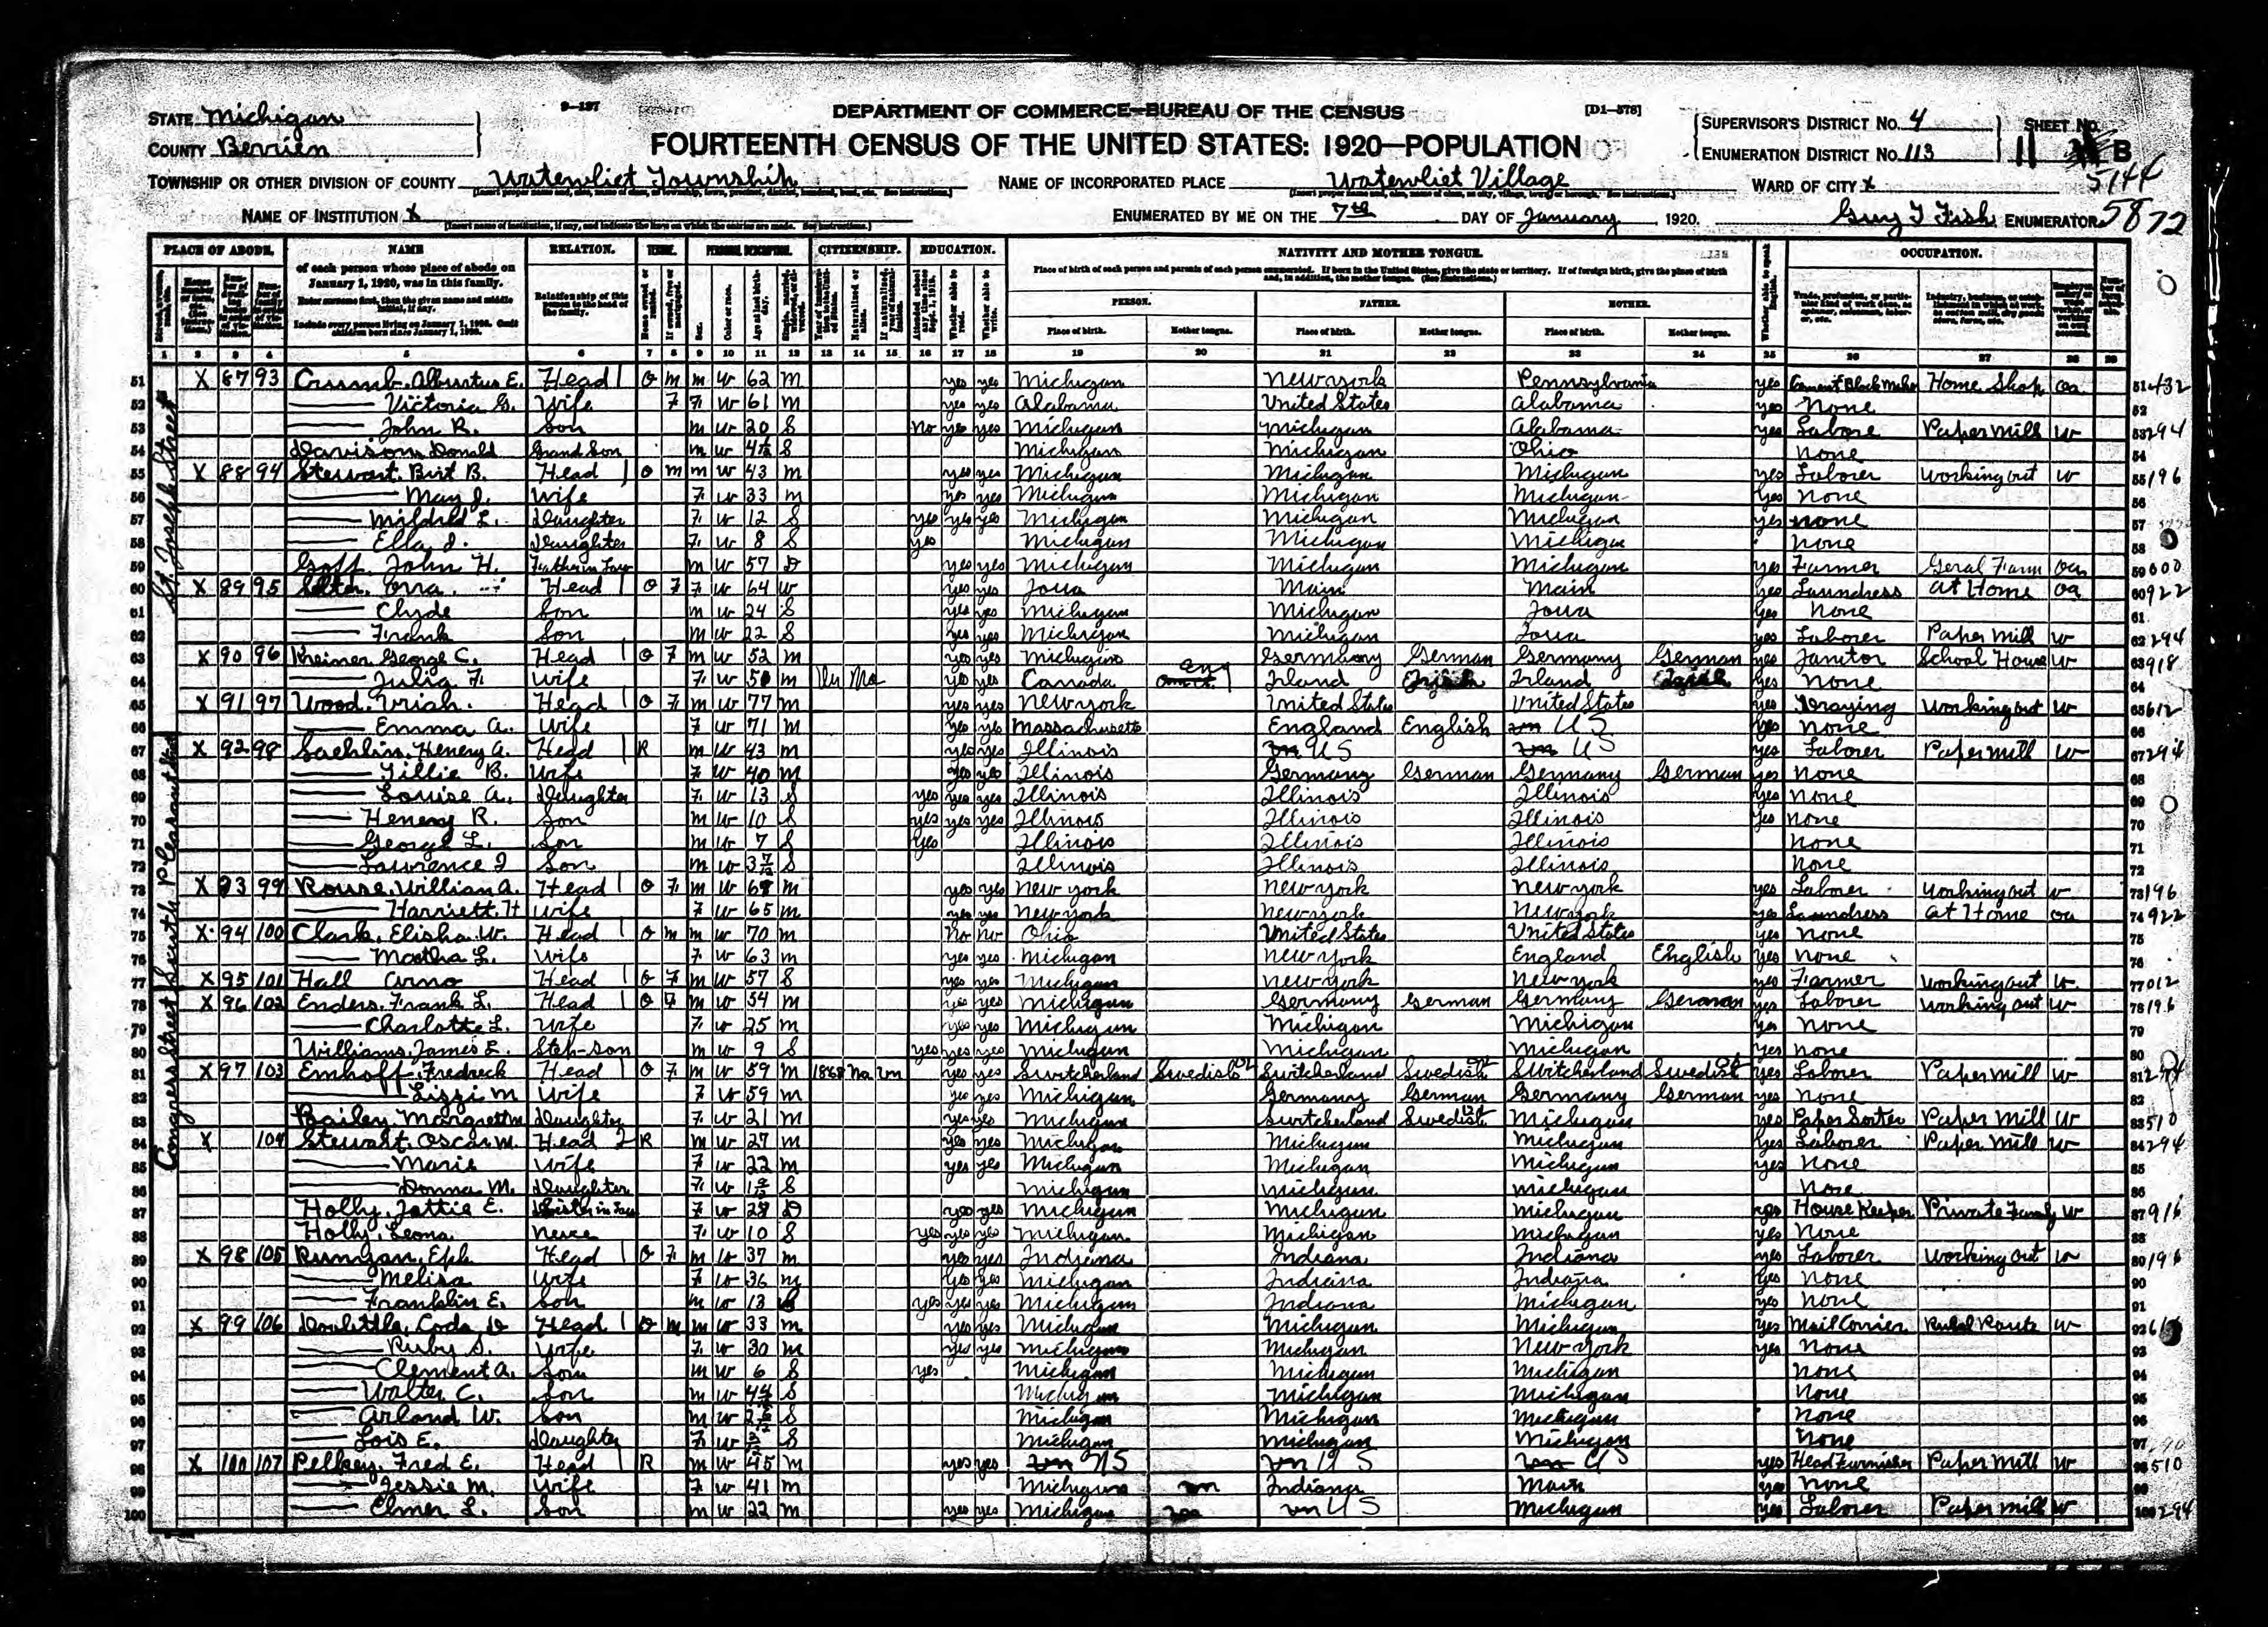 9-137
DEPARTMENT OF COMMERCE—BUREAU OF THE CENSUS
[D1-578]
STATE Michigan
COUNTY Berrien
FOURTEENTH CENSUS OF THE UNITED STATES: 1920—POPULATION
SUPERVISOR'S DISTRICT NO. 4
ENUMERATION DISTRICT NO. 113
SHEET NO.
11 B
5144
TOWNSHIP OR OTHER DIVISION OF COUNTY Watervliet Township
NAME OF INCORPORATED PLACE Watervliet Village
WARD OF CITY X
NAME OF INSTITUTION X
ENUMERATED BY ME ON THE 7th DAY OF January, 1920.
Guy T Fish ENUMERATOR
5872
PLACE OF ABODE. NAME RELATION. TENURE. PERSONAL DESCRIPTION. CITIZENSHIP. EDUCATION. NATIVITY AND MOTHER TONGUE. OCCUPATION.
of each person whose place of abode on January 1, 1920, was in this family.
Enter surname first, then the given name and middle initial, if any.
Include every person living on January 1, 1920. Omit children born since January 1, 1920.
Relationship of this person to the head of the family.
Place of birth of each person and parents of each person enumerated. If born in the United States, give the state or territory. If of foreign birth, give the place of birth and, in addition, the mother tongue. (See Instructions.)
PERSON. FATHER. MOTHER.
Place of birth. Mother tongue. Place of birth. Mother tongue. Place of birth. Mother tongue.
1 2 3 4 5 6 7 8 9 10 11 12 13 14 15 16 17 18 19 20 21 22 23 24 25 26 27 28 29
St. Joseph Street
South Pleasant Street
Congress Street
51 X 87 93 Crumb, Alburtus E. Head 1 O m m W 62 m yes yes Michigan New York Pennsylvania yes Cement Block Maker Home Shop oa 51 432
52 Victoria G. Wife 7 F W 61 m yes yes Alabama United States Alabama yes None 52
53 John R. Son m W 20 S No yes yes Michigan Michigan Alabama yes Labore Paper Mill W 53 294
54 Davison, Donald Grand Son m W S Michigan Michigan Ohio none 54
55 X 88 94 Stewart, Birt B. Head 1 O m m W 43 m yes yes Michigan Michigan Michigan yes Laborer Working out W 55 196
56 May J. Wife F W 33 m yes yes Michigan Michigan Michigan yes None 56
57 Mildred L. Daughter F W 12 S yes yes yes Michigan Michigan Michigan yes none 57
58 Ella J. Daughter F W 8 S yes Michigan Michigan Michigan none 58
59 Goff, John H. Father in Law m W 57 D yes yes Michigan Michigan Michigan yes Farmer Geral Farm oa 59 000
60 X 89 95 Orra Head O F F W 64 W yes yes Iowa Main Main yes Laundress at Home oa 60 922
61 Clyde Son m W 24 S yes yes Michigan Michigan Iowa yes None 61
62 Frank Son m W 22 S yes yes Michigan Michigan Iowa yes Laborer Paper Mill W 62 294
63 X 90 96 Kreiner, George C. Head 1 O F m W 52 m yes yes Michigan Germany German Germany German yes Janitor School House W 63 918
64 Julia F. Wife F W 50 m Un Na yes yes Canada eng Irland Irland yes None 64
65 X 91 97 Wood, Uriah Head 1 O F m W 77 m yes yes New York United States United States yes Draying Working out W 65 612
66 Emma A. Wife F W 71 m yes yes Massachusetts England English un US yes None 66
67 X 92 98 Henery A. Head 1 R m W 43 m yes yes Illinois un US un US yes Laborer Paper Mill W 67 294
68 Tillie B. Wife F W 40 m yes yes Illinois Germany German Germany German yes None 68
69 Louise A. Daughter F W 13 S yes yes yes Illinois Illinois Illinois yes None 69
70 Henery R. Son m W 10 S yes yes yes Illinois Illinois Illinois yes none 70
71 George L. Son m W 7 S yes Illinois Illinois Illinois None 71
72 Lawrence J Son m W 3 7/12 S Illinois Illinois Illinois None 72
73 X 93 99 Rouse, William A. Head 1 O F m W 68 m yes yes New York New York New York yes Laborer Working out W 73 196
74 Harriett H Wife F W 65 m yes yes New York New York New York yes Laundress at Home oa 74 922
75 X 94 100 Clark, Elisha W. Head 1 O m m W 70 m No no Ohio United States United States yes None 75
76 Martha L. Wife F W 63 m yes yes Michigan New York England English yes None 76
77 X 95 101 Hall Arno Head 1 O F m W 57 S yes yes Michigan New York New York yes Farmer Working out W 77 012
78 X 96 102 Enders, Frank L. Head 1 O F m W 54 m yes yes Michigan Germany German Germany German yes Laborer Working out W 78 196
79 Charlotte L. Wife F W 25 m yes yes Michigan Michigan Michigan yes None 79
80 Williams, James L. Step-son m W 9 S yes yes yes Michigan Michigan Michigan yes None 80
81 X 97 103 Emhoff, Fredreck Head 1 O F m W 59 m 1868 Na un yes yes Switcherland Swedish Switcherland Swedish Switcherland Swedish yes Laborer Paper Mill W 81 294
82 Lizzi M Wife F W 59 m yes yes Michigan Germany German Germany German yes None 82
83 Bailey, Margrett M Daughter F W 21 m yes yes Michigan Switcherland Swedish Michigan yes Paper Sorter Paper Mill W 83 510
84 X 104 Stewart, Oscar M. Head 2 R m W 27 m yes yes Michigan Michigan Michigan yes Laborer Paper Mill W 84 294
85 Marie Wife F W 22 m yes yes Michigan Michigan Michigan yes None 85
86 Donna M. Daughter F W S Michigan Michigan Michigan None 86
87 Holly, Tattie E. Sister in Law F W 28 D yes yes Michigan Michigan Michigan yes House Keeper Private Family W 87 916
88 Holly, Leona Neice F W 10 S yes yes yes Michigan Michigan Michigan yes None 88
89 X 98 105 Runyan, Eph Head 1 O F m W 37 m yes yes Indiana Indiana Indiana yes Laborer Working out W 89 196
90 Melisa Wife F W 36 m yes yes Michigan Indiana Indiana yes None 90
91 Franklin E. Son m W 13 S yes yes yes Michigan Indiana Michigan yes None 91
92 X 99 106 Doulittle, Coda D Head 1 O m m W 33 m yes yes Michigan Michigan Michigan yes Mail Carrier Rural Route W 92
93 Ruby S. Wife F W 30 m yes yes Michigan Michigan New York yes None 93
94 Clement A. Son m W 6 S yes Michigan Michigan Michigan None 94
95 Walter C. Son m W S Michigan Michigan Michigan None 95
96 Arland W. Son m W S Michigan Michigan Michigan None 96
97 Lois E. Daughter F W S Michigan Michigan Michigan None 97
98 X 100 107 Pelkey, Fred E. Head 1 R m W 45 m yes yes un US un US un US yes Head Furnisher Paper Mill W 98 510
99 Jessie M. Wife F W 41 m Michigan un Indiana Main yes None 99
100 Elmer L. Son m W 22 m yes yes Michigan un US Michigan yes Laborer Paper Mill W 100 294